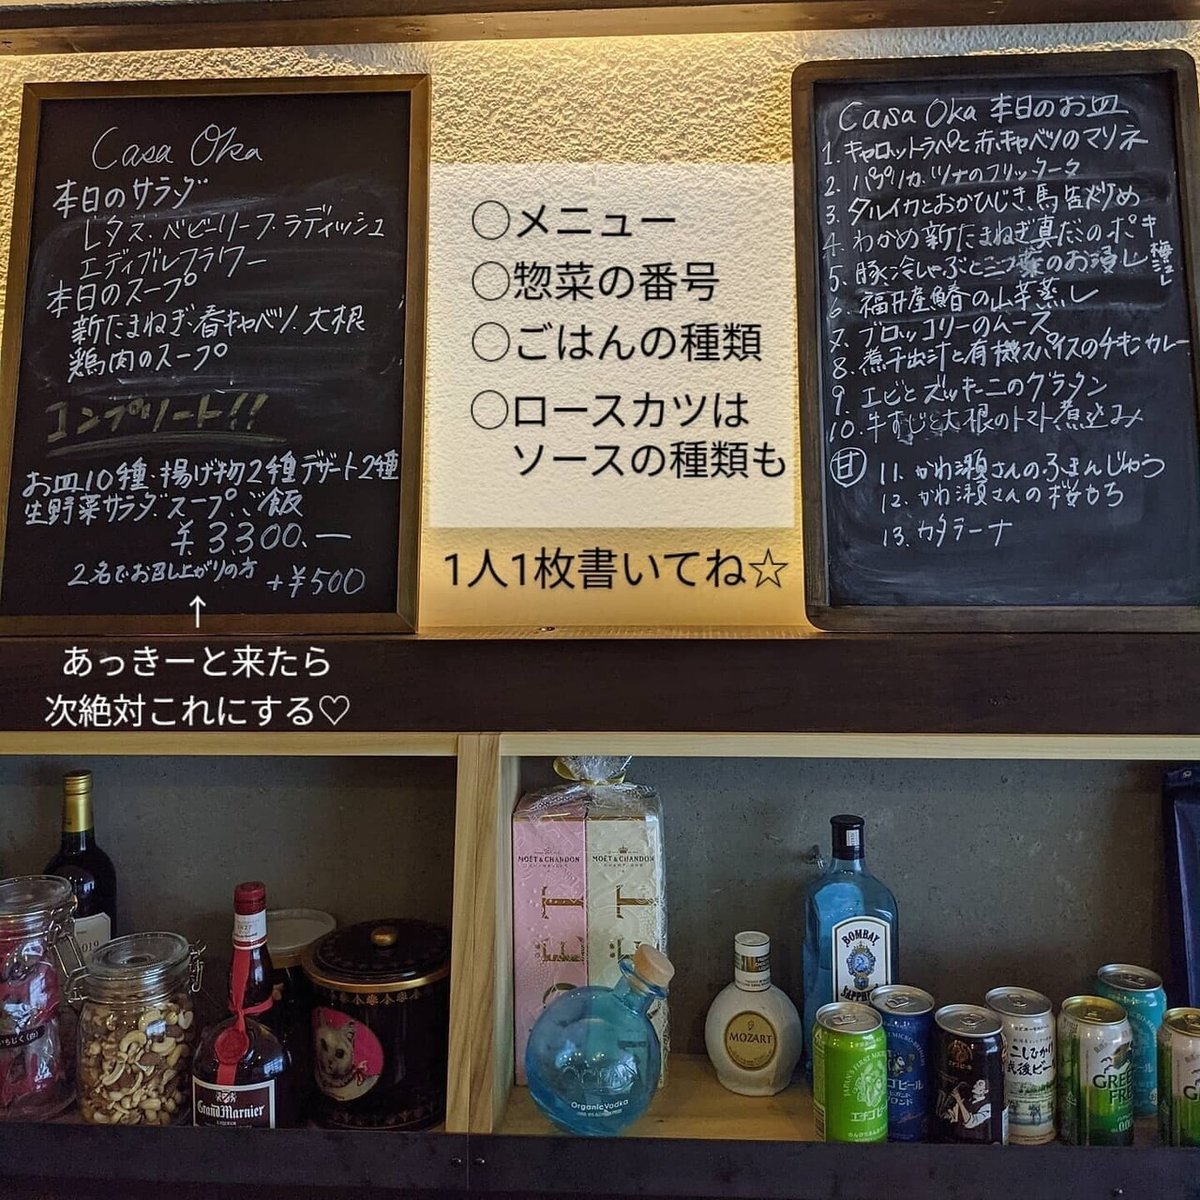 Casa Oka
本日のサラダ
レタス.ベビーリーフ.ラディッシュ
エディブルフラワー
本日のスープ
新たまねぎ.春キャベツ.大根
鶏肉のスープ
コンプリート!!
お皿10種.揚げ物2種デザート2種
生野菜サラダ.スープ.ご飯
¥3,300.—
2名でお召し上がりの方 +¥500
↑
あっきーと来たら
次絶対これにする♡
○メニュー
○惣菜の番号
○ごはんの種類
○ロースカツは
ソースの種類も
1人1枚書いてね☆
Casa Oka 本日のお皿
1.キャロットラペと赤キャベツのマリネ
2.パプリカ.ツナのフリッタータ
3.タルイカとおかひじき.馬告炒め
4.わかめ新たまねぎ真だいのポキ
5.豚冷しゃぶと三つ葉のお浸し 梅出し
6.福井産鰆の山芋蒸し
7.ブロッコリーのムース
8.煮干出汁と有機スパイスのチキンカレー
9.エビとズッキーニのグラタン
10.牛すじと大根のトマト煮込み
甘 11.かわ瀬さんのふまんじゅう
12.かわ瀬さんの桜もち
13.カタラーナ
MOËT & CHANDON
MOËT & CHANDON
BOMBAY
SAPPHIRE
MOZART
Organic Vodka
Grand Marnier
LIQUEUR
2019
いちじく(白)
エチゴビール
こしひかり
越後ビール
GREEN'S
FREE
0.00%